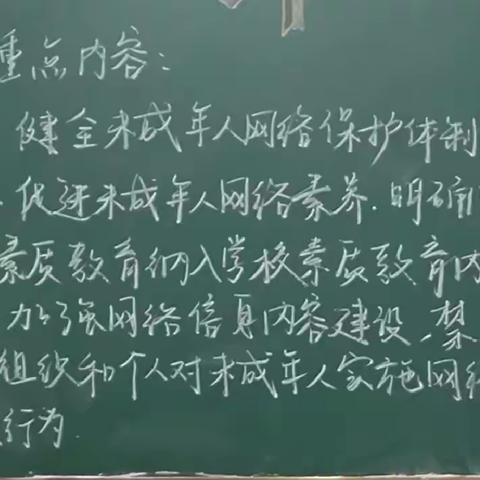 重点内容:
健全未成年人网络保护体制
促进未成年人网络素养.明确
素质教育纳入学校素质教育内
加强网络信息内容建设,禁
组织和个人对未成年人实施网络
行为.